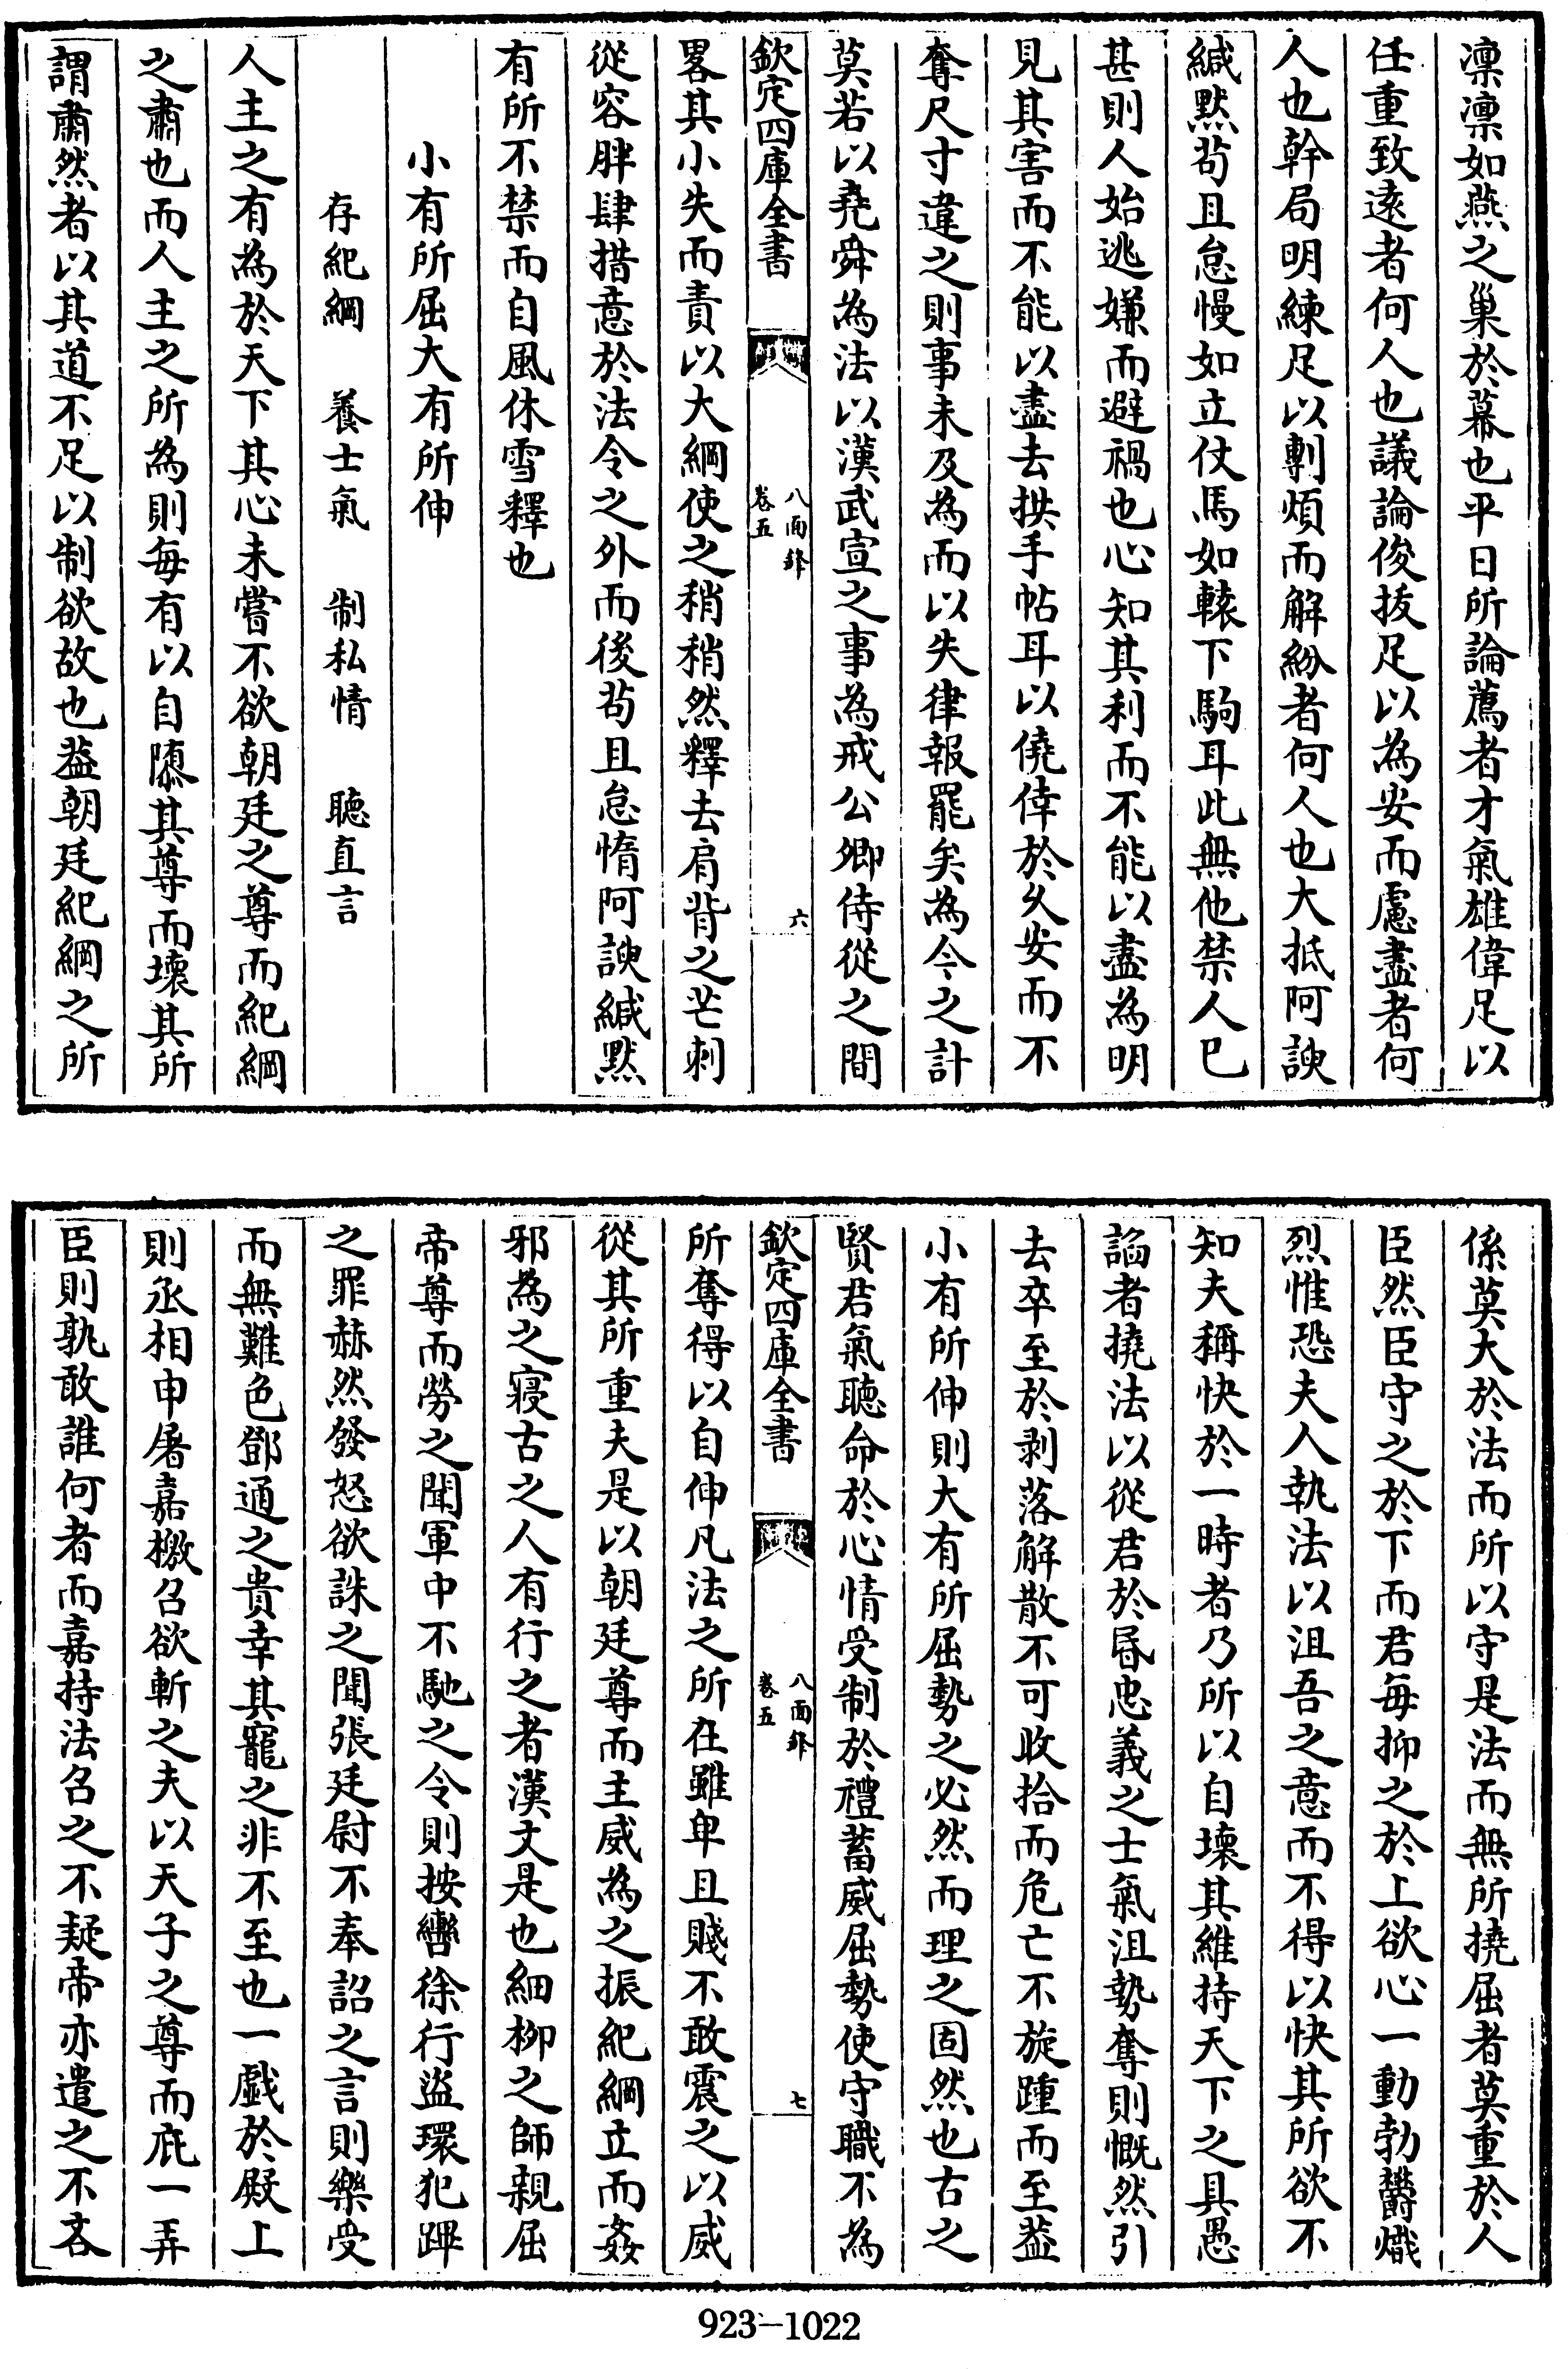 凛凛如燕之巢於幕也平日所論薦者才氣雄偉足以
任重致遠者何人也議論俊拔足以為安而慮盡者何
人也幹局明練足以剸煩而解紛者何人也大抵阿諛
緘默苟且怠慢如立仗馬如轅下駒耳此無他禁人已
甚則人始逃嫌而避禍也心知其利而不能以盡為明
見其害而不能以盡去拱手帖耳以僥倖於久安而不
奪尺寸違之則事未及為而以失律報罷矣為今之計
莫若以堯舜為法以漢武宣之事為戒公卿侍從之間
欽定四庫全書
八面鋒
卷五
六
畧其小失而責以大綱使之稍稍然釋去肩背之芒刺
從容胖肆措意於法令之外而後苟且怠惰阿諛緘默
有所不禁而自風休雪釋也
小有所屈大有所伸
存紀綱 養士氣 制私情 聽直言
人主之有為於天下其心未嘗不欲朝廷之尊而紀綱
之肅也而人主之所為則每有以自隳其尊而壞其所
謂肅然者以其道不足以制欲故也葢朝廷紀綱之所
係莫大於法而所以守是法而無所撓屈者莫重於人
臣然臣守之於下而君每抑之於上欲心一動勃鬱熾
烈惟恐夫人執法以沮吾之意而不得以快其所欲不
知夫稱快於一時者乃所以自壞其維持天下之具愚
謟者撓法以從君於昏忠義之士氣沮勢奪則慨然引
去卒至於剥落解散不可收拾而危亡不旋踵而至葢
小有所伸則大有所屈勢之必然而理之固然也古之
賢君氣聽命於心情受制於禮蓄威屈勢使守職不為
欽定四庫全書
八面鋒
卷五
七
所奪得以自伸凡法之所在雖卑且賤不敢震之以威
從其所重夫是以朝廷尊而主威為之振紀綱立而姦
邪為之寢古之人有行之者漢文是也細柳之師親屈
帝尊而勞之聞軍中不馳之令則按轡徐行盜環犯蹕
之罪赫然發怒欲誅之聞張廷尉不奉詔之言則樂受
而無難色鄧通之貴幸其寵之非不至也一戱於殿上
則丞相申屠嘉檄召欲斬之夫以天子之尊而庇一弄
臣則孰敢誰何者而嘉持法名之不疑帝亦遣之不吝
923—1022